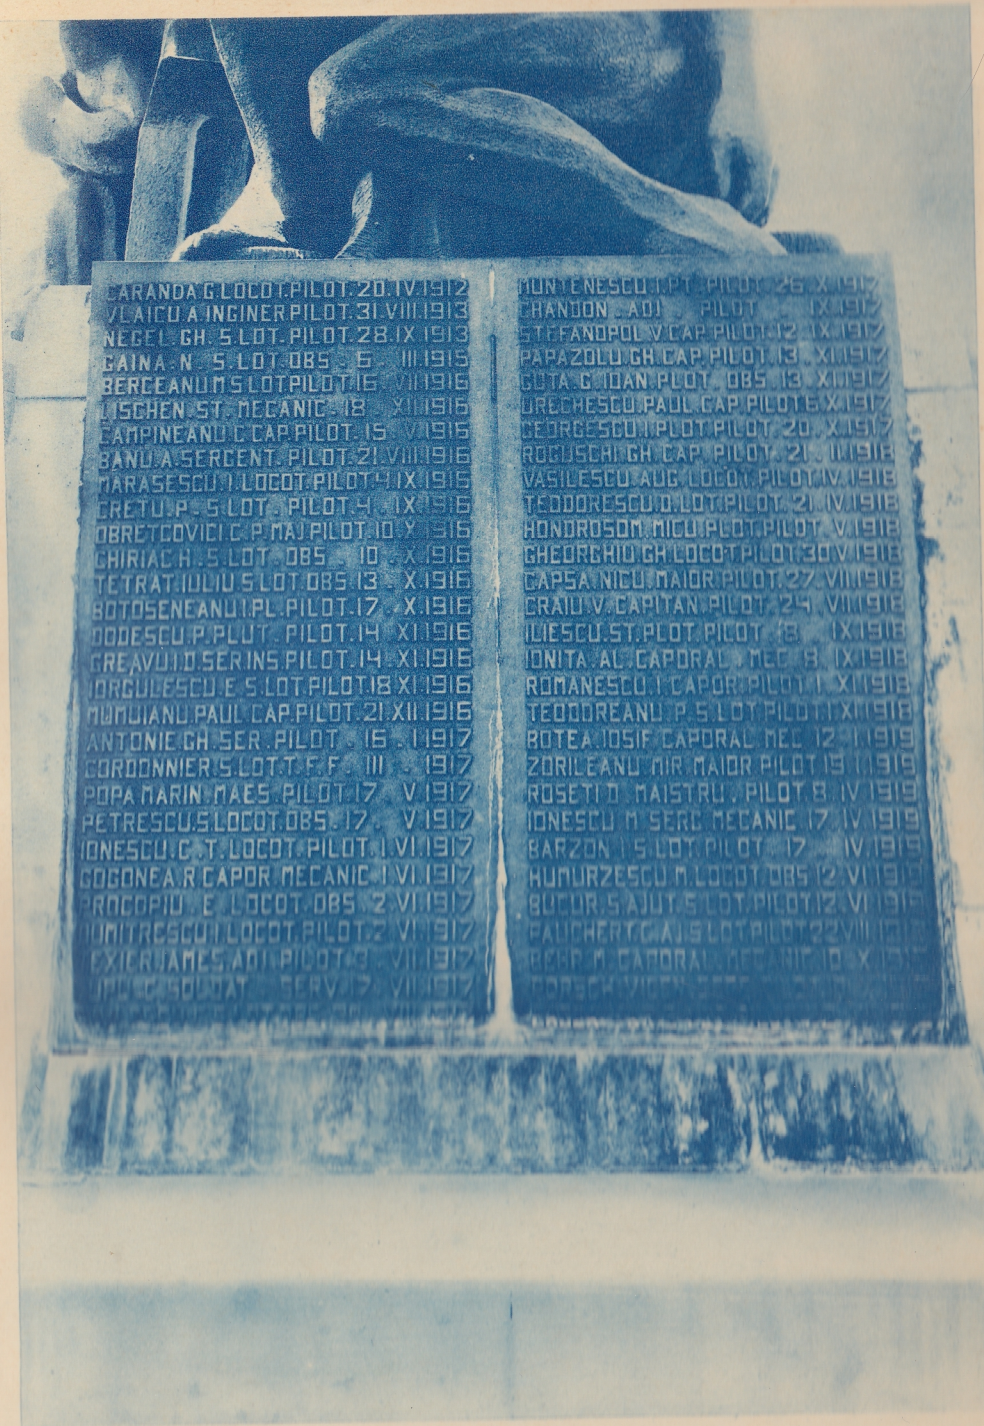 CARANDA G. LOCOT. PILOT. 20. IV. 1912
VLAICU A INGINER PILOT. 31. VIII. 1913
NEGEL. GH. S. LOT. PILOT. 28. IX 1913
GAINA. N S. LOT. OBS. 6 III 1915
BERCEANU M S LOT PILOT. 16 VII 1916
LISCHEN. ST. MECANIC. 18 XI. 1916
CAMPINEANU. C. CAP. PILOT. 15 V. 1916
BANU. A. SERGENT. PILOT. 21 VIII. 1916
MARASESCU. I. LOCOT. PILOT 4 IX 1916
CRETU. P. S. LOT. PILOT. 4 IX 1916
OBRETCOVICI. C. P. MAJ. PILOT. 10 X 1916
CHIRIAC H. S. LOT OBS 10 X. 1916
TETRAT. IULIU S. LOT. OBS 13 X. 1916
BOTOSENEANU I. PL. PILOT. 17. X. 1916
DODESCU. P. PLUT. PILOT. 14 XI. 1916
GREAVU. I. D. SER INS. PILOT. 14 XI. 1916
IORGULESCU. E. S. LOT. PILOT. 18 XI. 1916
MUMUIANU. PAUL. CAP. PILOT. 21. XII. 1916
ANTONIE. GH. SER. PILOT 16 I. 1917
CORDONNIER. S. LOT. T. F. F. III 1917
POPA MARIN. MAES. PILOT. 17 V 1917
PETRESCU. S. LOCOT. OBS. 17 V 1917
IONESCU. C. T. LOCOT. PILOT. 1. VI 1917
GOGONEA. R. CAPOR. MECANIC 1 VI 1917
PROCOPIU E LOCOT. OBS. 2 VI 1917
DUMITRESCU. I. LOCOT. PILOT. 2 VI 1917
TEXIER JAMES. ADJ. PILOT. 9 VII 1917
SOLDAT SERV. 17. VII 1917
MUNTENESCU. I. PT. PILOT. 26 X. 1917
CHANDON. ADJ. PILOT IX. 1917
STEFANOPOL. V. CAP. PILOT. 12 IX. 1917
PAPAZOLU GH. CAP. PILOT. 13. XI. 1917
GUTA G. IOAN. PLOT. OBS 13. X. 1917
URECHESCU. PAUL. CAP. PILOT 6. X. 1917
GEORGESCU. I. PLOT. PILOT. 20. X. 1917
ROGUSCHI. GH. CAP. PILOT. 21. II. 1918
VASILESCU. AUG. LOCOT. PILOT. IV. 1918
TEODORESCU. D. LOT. PILOT. 21. IV. 1918
HONDROSOM. MICU. PLOT. PILOT. V. 1918
GHEORGHIU. GH. LOCOT. PILOT. 30 V. 1918
CAPSA. NICU. MAIOR. PILOT. 27. VII. 1918
CRAIU. V. CAPITAN. PILOT. 24 VII. 1918
ILIESCU. ST. PLOT. PILOT 8 IX. 1918
IONITA. AL. CAPORAL. MEC 8 IX. 1918
ROMANESCU. I. CAPOR. PILOT. 1 X. 1918
TEODOREANU P. S. LOT PILOT 1 XI 1918
BOTEA. IOSIF. CAPORAL MEC 12 I. 1919
ZORILEANU MIR. MAIOR PILOT 19 I. 1919
ROSETI D MAISTRU. PILOT. 8 IV 1919
IONESCU M. SERG MECANIC 17 IV. 1919
BARZON. I. S. LOT. PILOT 17 IV. 1919
HUMURZESCU. M. LOCOT. OBS 12 VI. 1919
BUCUR. S. AJUT. S. LOT. PILOT 12. VI. 1919
PAUCHERT. C. AJ. S. LOT. PILOT 22 VIII
BEHR. M. CAPORAL MECANIC 10 X